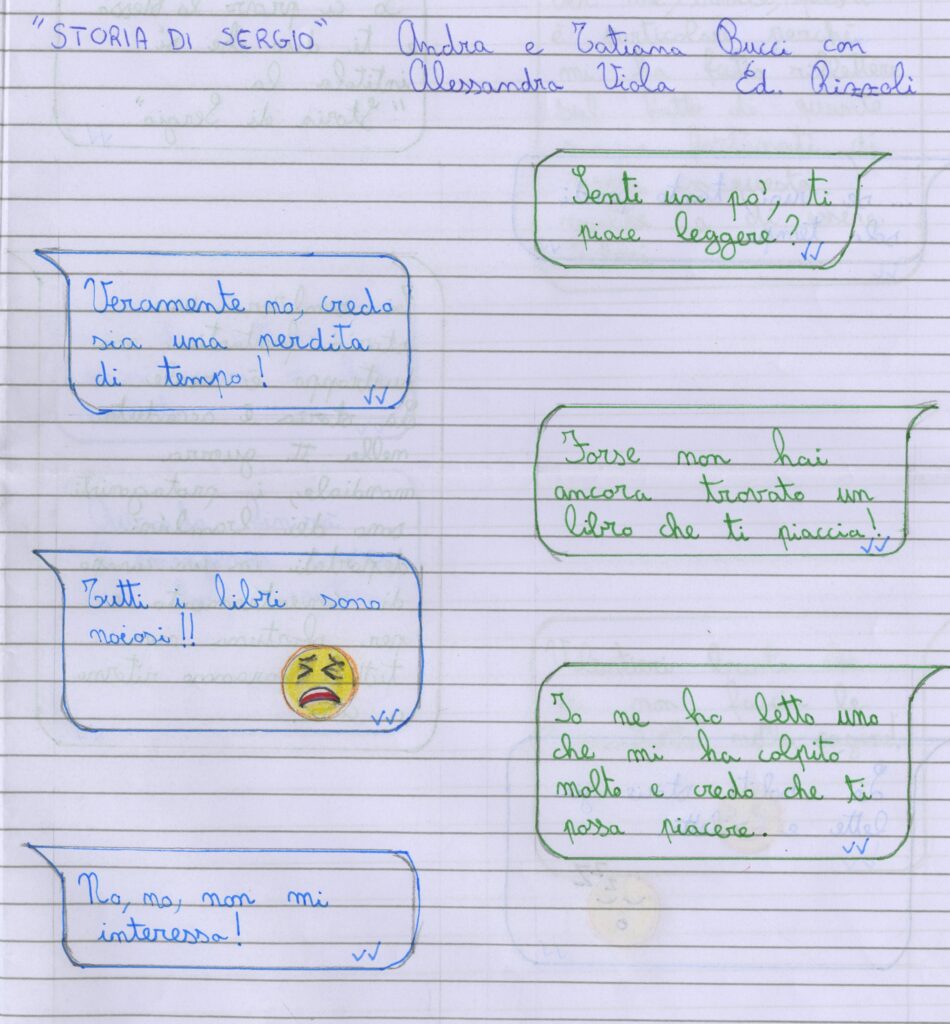 "STORIA DI SERGIO" Andra e Tatiana Bucci con
Alessandra Viola Ed. Rizzoli
Senti un pò, ti
piace leggere?
Veramente no, credo
sia una perdita
di tempo!
Forse non hai
ancora trovato un
libro che ti piaccia!
Tutti i libri sono
noiosi!!
Io ne ho letto uno
che mi ha colpito
molto e credo che ti
possa piacere.
No, no, non mi
interessa!